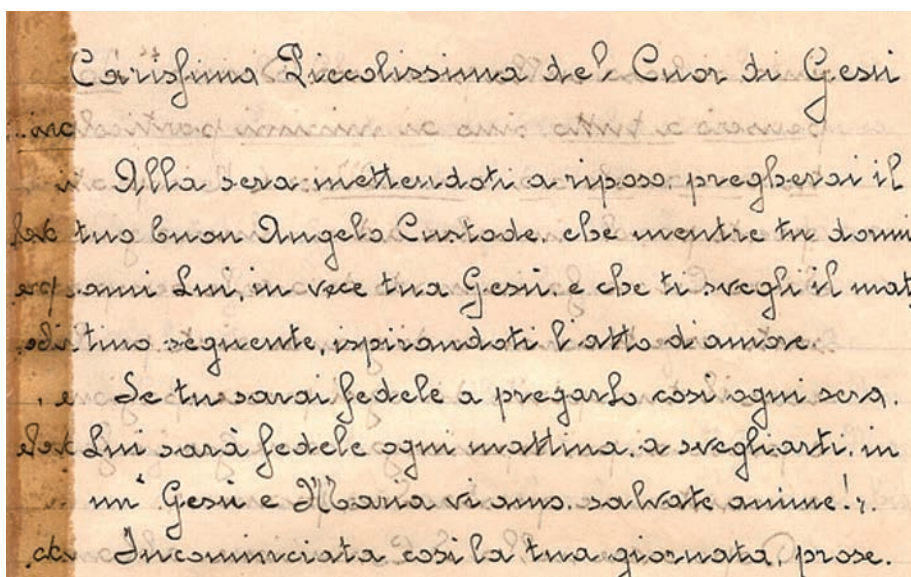 Carissima Piccolissima del Cuor di Gesù
Alla sera mettendoti a riposo, pregherai il
tuo buon Angelo Custode, che mentre tu dormi
ami Lui, in vece tua Gesù, e che ti svegli il mat
tino seguente, ispirandoti l'atto d'amore.
Se tu sarai fedele a pregarlo così ogni sera,
Lui sarà fedele ogni mattina, a svegliarti, in
un' Gesù e Maria vi amo, salvate anime!;
Incominciata così la tua giornata, prose.